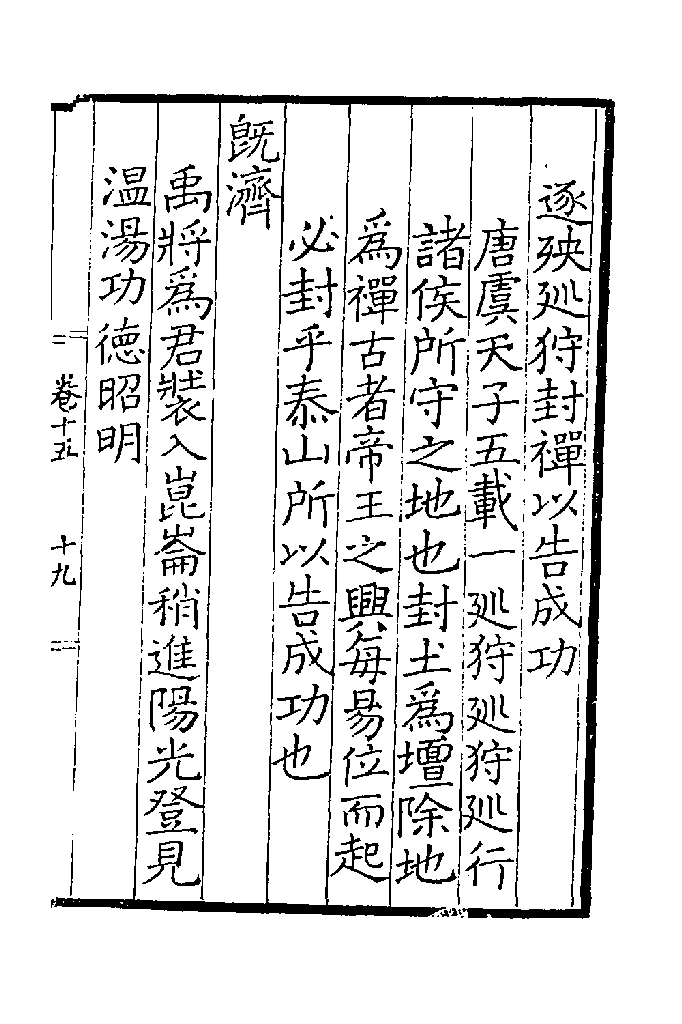 逐殃廵狩封禪以告成功
唐虞天子五載一廵狩廵狩廵行
諸侯所守之地也封土爲壇除地
爲禪古者帝王之興每易位而起
必封乎泰山所以告成功也
旣濟
禹將爲君裝入崑崙稍進陽光登見
温湯功德昭明
卷十五
十九